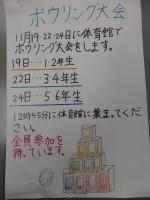 ボウリング大会
11月19・22・24日に体育館で
ボウリング大会をします。
19日‥‥1・2年生
22日‥‥3・4年生
24日‥‥5・6年生
12時45分に体育館に集まってくだ
さい。
全員参加を
待っています。